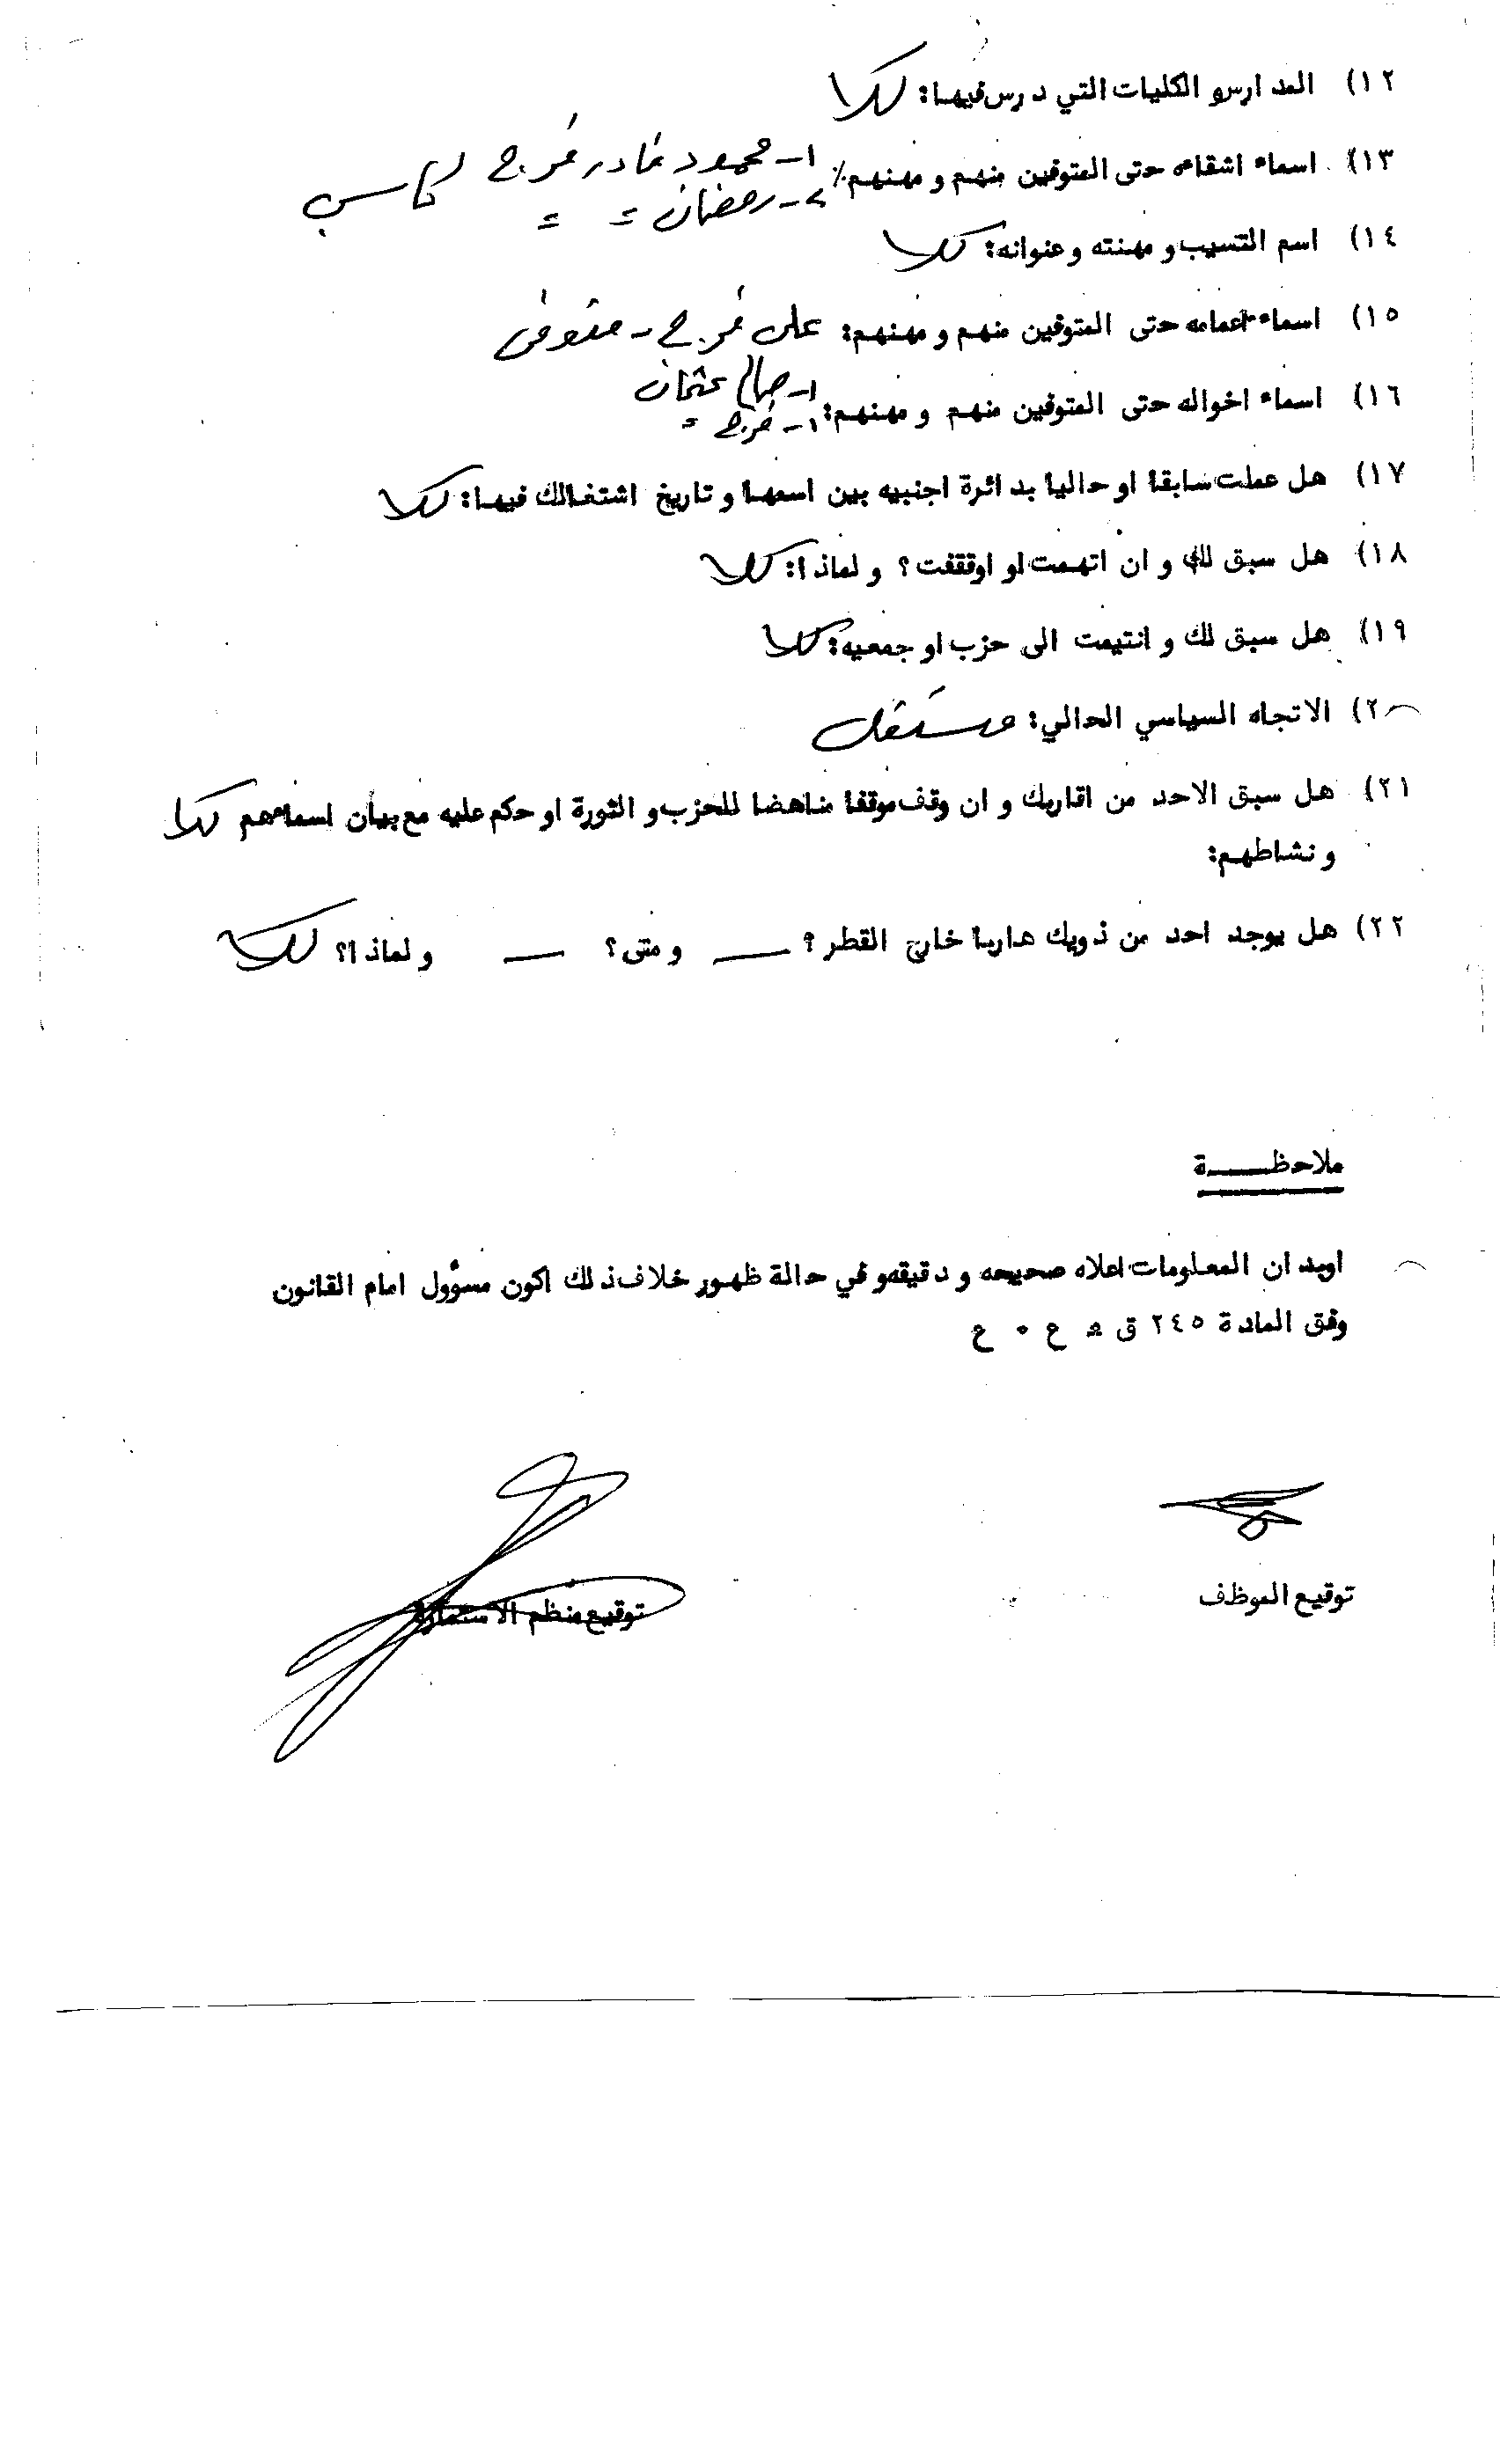 ١٢) المدارس و الكليات التي درس فيها: كلا
١٣) اسماء اشقاءه حتى المتوفين منهم و مهنهم: ١- محمود قادر فرج كاسب
٢- رمضان = =
١٤) اسم التسيب و مهنته و عنوانه: كلا
١٥) اسماء اعمامه حتى المتوفين منهم و مهنهم: على فرج - متوفى
١٦) اسماء اخواله حتى المتوفين منهم و مهنهم: ١- صالح عثمان
١- فرج =
١٧) هل عملت سابقا او حاليا بدائرة اجنبيه بين اسمها و تاريخ اشتغالك فيها: كلا
١٨) هل سبق لك و ان اتهمت او اوقفت؟ و لماذا: كلا
١٩) هل سبق لك و انتيمت الى حزب او جمعيه: كلا
٢٠) الاتجاه السياسي الحالي: مستقل
٢١) هل سبق الاحد من اقاربك و ان وقف موقفا مناهضا للحزب و الثورة او حكم عليه مع بيان اسماءهم كلا
و نشاطهم:
٢٢) هل يوجد احد من ذويك هاربا خارج القطر؟ — و متى؟ — و لماذا؟ كلا
ملاحظـــــة
اويد ان المعلومات اعلاه صحيحه و دقيقه و في حالة ظهور خلاف ذلك اكون مسؤول امام القانون
وفق المادة ٢٤٥ ق ٠ ع ٠ ع
توقيع الموظف توقيع منظم الاستمارة